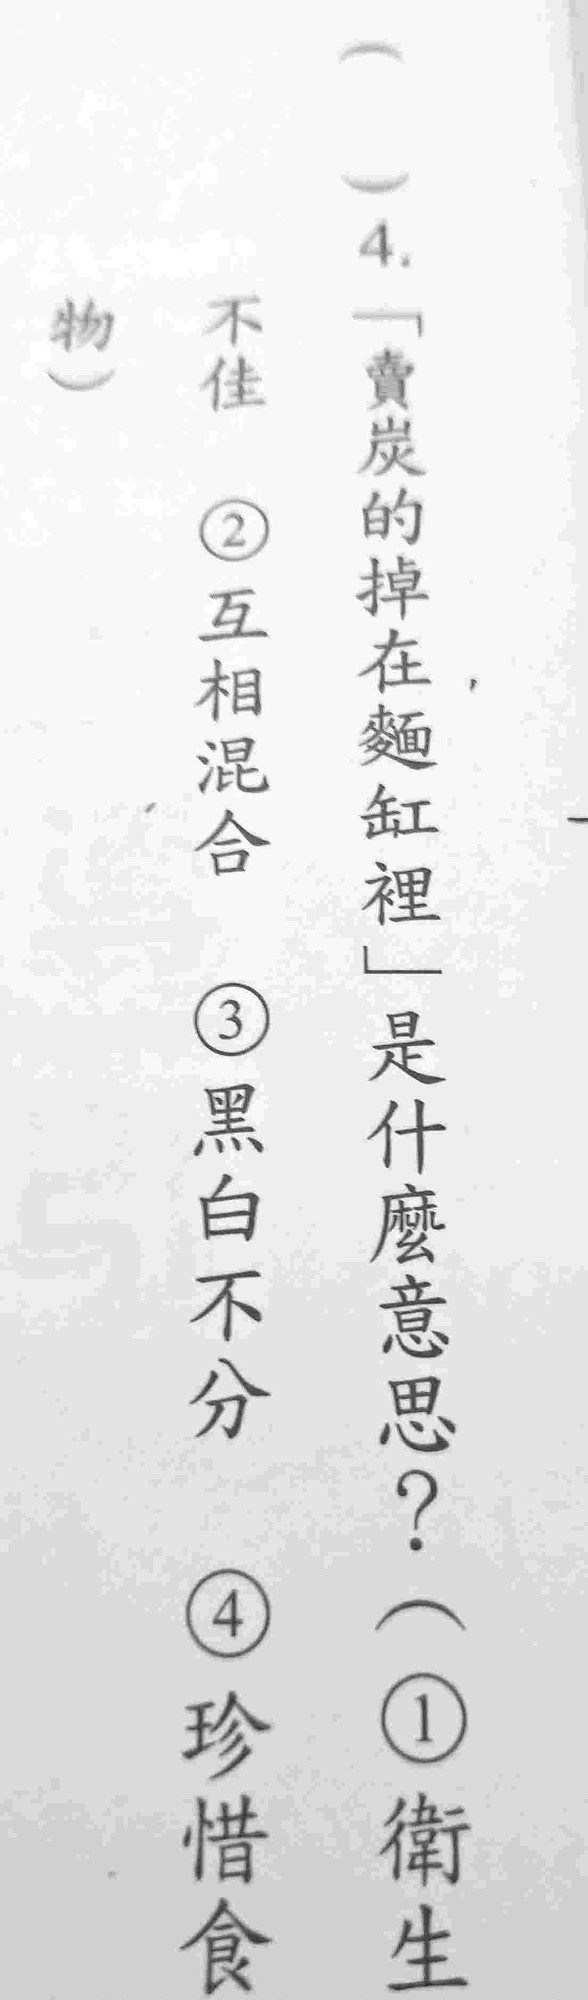 (　)4.「賣炭的掉在麵缸裡」是什麼意思?(①衛生
不佳　②互相混合　③黑白不分　④珍惜食
物)